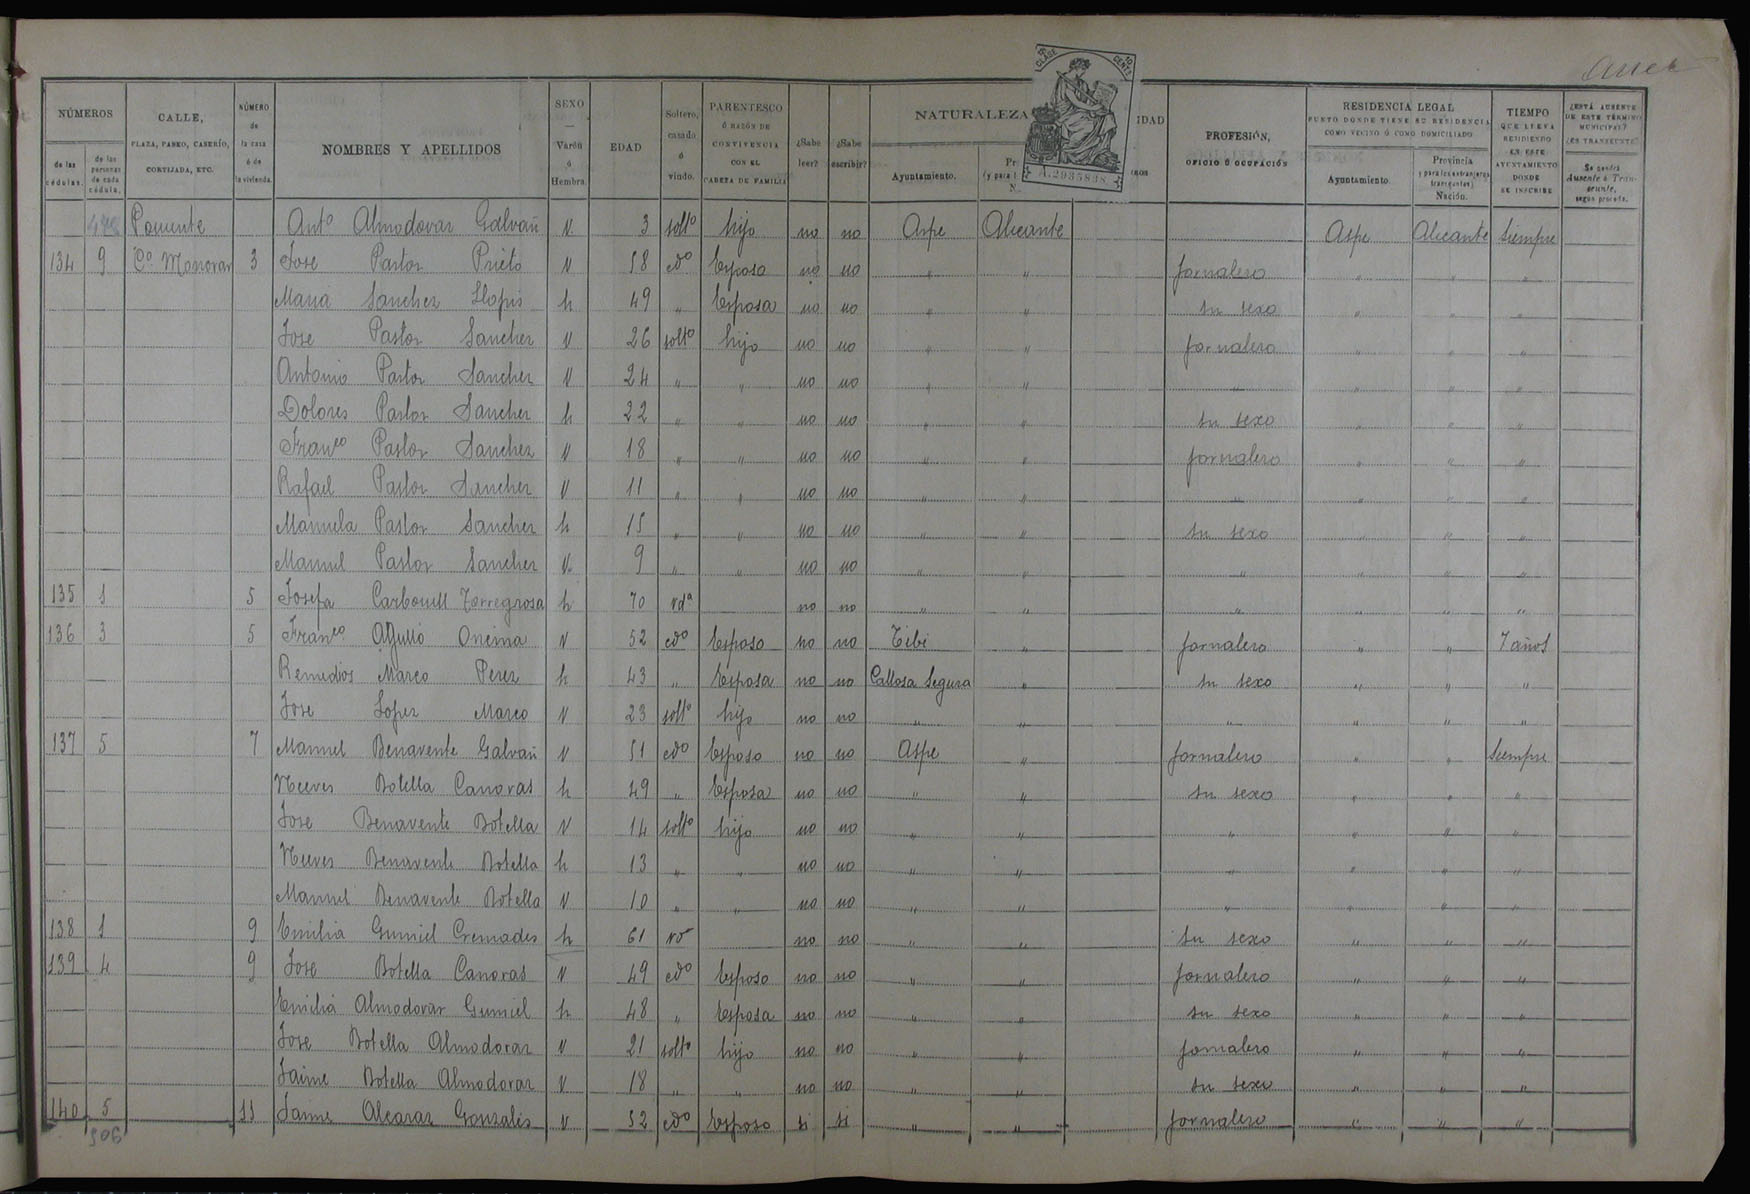 NÚMEROS
de las cédulas.
de las personas de cada cédula.
CALLE,
PLAZA, PASEO, CASERÍO,
CORTIJADA, ETC.
NÚMERO de la casa ó de la vivienda.
NOMBRES Y APELLIDOS
SEXO — Varón ó Hembra.
EDAD
Soltero, casado ó viudo.
PARENTESCO Ó RAZÓN DE CONVIVENCIA CON EL CABEZA DE FAMILIA
¿Sabe leer?
¿Sabe escribir?
NATURALEZA
Ayuntamiento.
IDAD
8ª CLASE 10 CENTS
A.2935838
PROFESIÓN,
OFICIO Ó OCUPACIÓN
RESIDENCIA LEGAL
PUNTO DONDE TIENE SU RESIDENCIA COMO VECINO Ó COMO DOMICILIADO
Ayuntamiento.
Provincia (y para los extranjeros transeuntes) Nación.
TIEMPO QUE LLEVA RESIDIENDO EN ESTE AYUNTAMIENTO DONDE SE INSCRIBE
¿ESTÁ AUSENTE DE ESTE TÉRMINO MUNICIPAL? ¿ES TRANSEUNTE?
Se pondrá Ausente ó Transeunte, según proceda.
Poniente Antº Almodovar Galvañ V 3 soltº hijo no no Aspe Alicante Aspe Alicante Siempre
134 9 Cº Monovar 3 Jose Pastor Prieto V 58 cdº Esposo no no " " Jornalero " " "
Maria Sanchez Llopis h 49 " Esposa no no " " su sexo " " "
Jose Pastor Sanchez V 26 soltº hijo no no " " Jornalero " " "
Antonio Pastor Sanchez V 24 " " no no " " " " " "
Dolores Pastor Sanchez h 22 " " no no " " su sexo " " "
Franco Pastor Sanchez V 18 " " no no " " Jornalero " " "
Rafael Pastor Sanchez V 11 " " no no " " " " " "
Manuela Pastor Sanchez h 15 " " no no " " su sexo " " "
Manuel Pastor Sanchez V. 9 " " no no " " " " " "
135 1 5 Josefa Carbonell Torregrosa h 70 vdª no no " " " " " "
136 3 5 Franco Agullo Oncina V 52 cdº Esposo no no Tibi " Jornalero " " 7 años
Remedios Marco Perez h 43 " Esposa no no Callosa Segura " su sexo " " "
Jose Lopez Marco V 23 soltº hijo no no " " " " " "
137 5 7 Manuel Benavente Galvañ V 51 cdº Esposo no no Aspe " Jornalero " " Siempre
Nieves Botella Canovas h 49 " Esposa no no " " su sexo " " "
Jose Benavente Botella V 14 soltº hijo no no " " " " " "
Nieves Benavente Botella h 13 " " no no " " " " "
Manuel Benavente Botella V 10 " " no no " " " " " "
138 1 9 Emilia Gumiel Cremades h 61 no no " " su sexo " " "
139 4 9 Jose Botella Canovas V 49 cdº Esposo no no " " Jornalero " " "
Emilia Almodovar Gumiel h 48 " Esposa no no " " su sexo " " "
Jose Botella Almodovar V 21 soltº hijo no no " " Jornalero " " "
Jaime Botella Almodovar V 18 " " no no " " su sexo " " "
140 5 11 Jaime Alcaraz Gonzales V 52 cdº Esposo si si " " Jornalero " " "
506